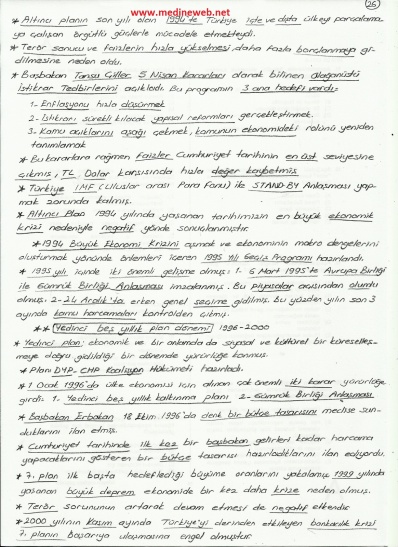 www.medineweb.net
26
* Altıncı planın son yılı olan 1994'te Türkiye içte ve dışta ülkeyi parçalama-
ya çalışan örgütlü güçlerle mücadele etmekteydi.
* Terör sonucu ve faizlerin hızla yükselmesi daha fazla borçlanmaya gi-
dilmesine neden oldu.
* Başbakan Tansu Çiller 5 Nisan kararları olarak bilinen olağanüstü
İstikrar Tedbirlerini açıkladı. Bu programın 3 ana hedefi vardı:
1- Enflasyonu hızla düşürmek
2- İstikrarı sürekli kılacak yapısal reformları gerçekleştirmek.
3- Kamu açıklarını aşağı çekmek, kamunun ekonomideki rolünü yeniden
tanımlamak
* Bu kararlara rağmen Faizler Cumhuriyet tarihinin en üst seviyesine
çıkmış, TL Dolar karşısında hızla değer kaybetmiş
* Türkiye IMF (Uluslar arası Para Fonu) ile STAND-BY Anlaşması yap-
mak zorunda kalmış.
* Altıncı Plan 1994 yılında yaşanan tarihimizin en büyük ekonomik
krizi nedeniyle negatif yönde sonuçlanmıştır.
* 1994 Büyük Ekonomi Krizini aşmak ve ekonominin makro dengelerini
oluşturmak yönünde önlemleri içeren 1995 Yılı Geçiş Programı hazırlandı.
* 1995 yılı içinde iki önemli gelişme olmuş: 1- 6 Mart 1995'te Avrupa Birliği
ile Gümrük Birliği Anlaşması imzalanmış. Bu piyasalar açısından olumlu
olmuş. 2- 24 Aralık'ta erken genel seçime gidilmiş. Bu yüzden yılın son 3
ayında kamu harcamaları kontrolden çıkmış.
** Yedinci beş yıllık plan dönemi 1996-2000
* Yedinci plan: ekonomik ve bir anlamda da siyasal ve kültürel bir küreselleş-
meye doğru gidildiği bir dönemde yürürlüğe konmuş.
* Planı DYP-CHP Koalisyon Hükümeti hazırladı.
* 1 Ocak 1996'da ülke ekonomisi için alınan çok önemli iki karar yürürlüğe
girdi: 1- Yedinci beş yıllık kalkınma planı 2- Gümrük Birliği Anlaşması
* Başbakan Erbakan 18 Ekim 1996'da denk bir bütçe tasarısını meclise sun-
duklarını ilan etmiş.
* Cumhuriyet tarihinde ilk kez bir başbakan gelirleri kadar harcama
yapacaklarını gösteren bir bütçe tasarısı hazırladıklarını ilan ediyordu.
* 7. plan ilk başta hedeflediği büyüme oranlarını yakalamış 1999 yılında
yaşanan büyük deprem ekonomide bir kez daha krize neden olmuş.
* Terör sorununun artarak devam etmesi de negatif etkendir
* 2000 yılının Kasım ayında Türkiye'yi derinden etkileyen bankacılık krizi
7. planın başarıya ulaşmasına engel olmuştur.